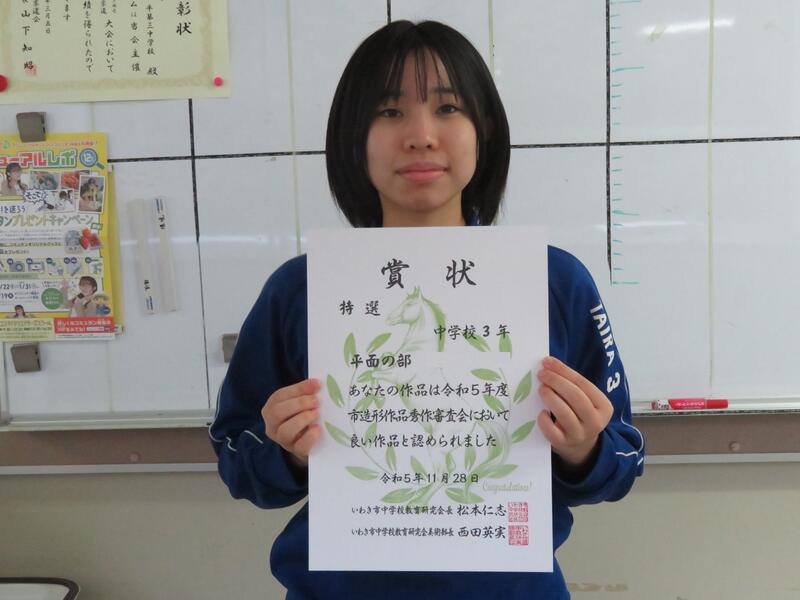 彰状
平第三中学校 殿
大会において
績を得られたので
山下知昭
ニューアルレポ
12
プレゼントキャンペーン
賞状
特選
中学校3年
平面の部
あなたの作品は令和5年度
市造形作品秀作審査会において
良い作品と認められました
令和5年11月28日
Congratulation!
いわき市中学校教育研究会長 松本仁志
いわき市中学校教育研究会美術部長 西田英実
TAIRA 3